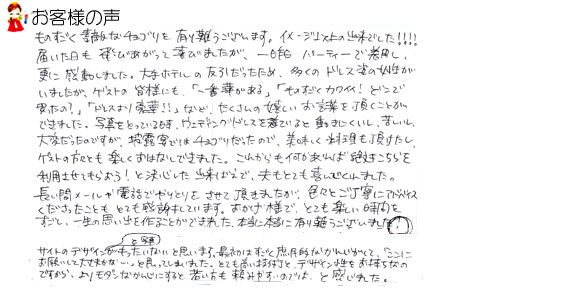 お客様の声
ものすごく素敵なチョゴリを有り難うございます。イメージ以上の出来でした!!!!
届いた日も飛びあがって喜びましたが、一昨日パーティーで着用し、
更に感動しました。大きなホテルの だったため、多くのドレス姿の女性が
いましたが、ゲストの皆様にも、「一番華がある」「ものすごくカワイイ!どこで
買ったの?」「ドレスより豪華!!」など、たくさんの嬉しいお言葉を頂くことが
できました。写真をとっている時、ウェディングドレスを着ていると動きにくいし、苦しいし、
大変だったのですが、披露宴ではチョゴリだったので、美味しく料理も頂けたし、
ゲストの方とも楽しくおはなしできました。これからも何かあれば絶対こちらを
利用させてもらおう!と決心した出来ばえで、夫もとても喜んでくれました。
長い間メールや電話でやりとりをさせて頂きましたが、色々とご丁寧にアドバイス
くださったことも、とても感謝しています。おかげ様で、とても楽しい時間を
すごし、一生の思い出を作ることができました。本当に本当に有り難うございました
と写真
サイトのデザインがもったいないと思います。最初はすごく庶民的なかんじがして、「ここに
お願いして大丈夫かな…」と思ってしまいました。とても高い技術と、デザイン性をお持ちなの
ですから、よりモダンなかんじにすると若い方も頼みやすいのでは、と感じました。